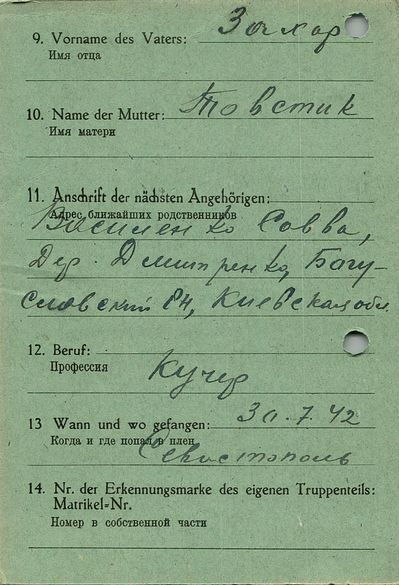 9. Vorname des Vaters: Захар
Имя отца
10. Name der Mutter: Товстик
Имя матери
11. Anschrift der nächsten Angehörigen:
Адрес ближайших родственников
Василенко Савва,
Дер. Дмитренки, Богу-
славский рн, Киевская обл.
12. Beruf:
Профессия
Кучер
13 Wann und wo gefangen: 30.7.42
Когда и где попал в плен
Севастополь
14. Nr. der Erkennungsmarke des eigenen Truppenteils:
Matrikel-Nr.
Номер в собственной части